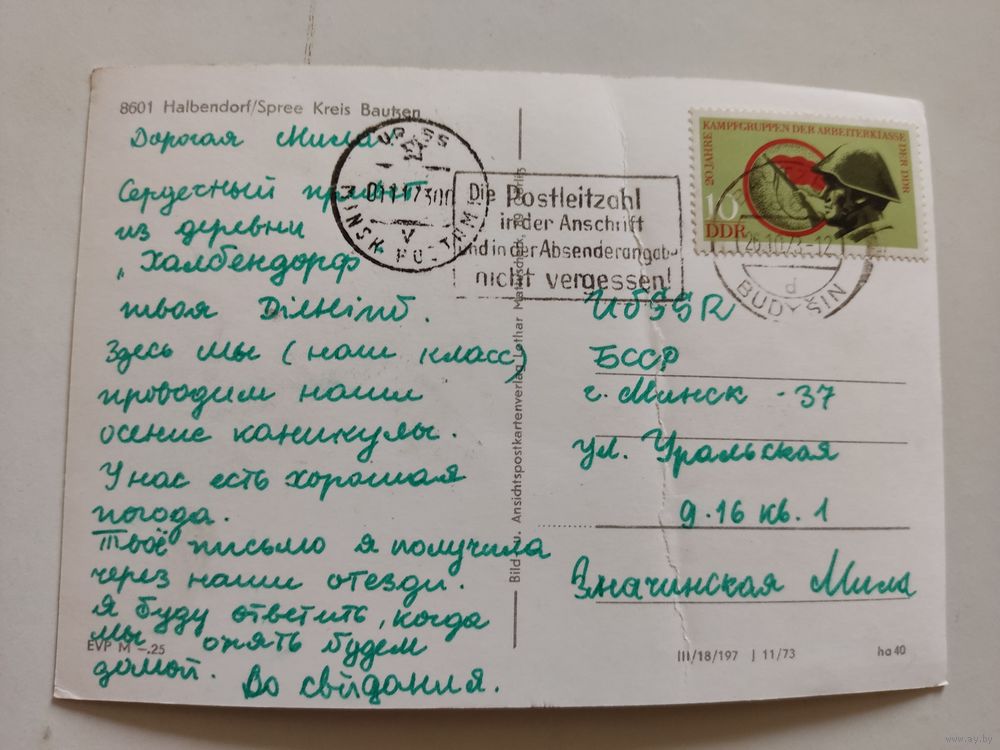 8601 Halbendorf/Spree Kreis Bautzen
Дорогая Мила!
Сердечный привет
из деревни
„Халбендорф
твоя
Здесь мы (наш класс)
проводим наши
осение каникулы.
У нас есть хорошая
погода.
Твоё письмо я получила
через наши отезди.
Я буду ответить, когда
мы опять будем
домой. Во свидания.
EVP M –.25
Bild u. Ansichtspostkartenverlag Lothar
MINSK
01 11 73
Die Postleitzahl
in der Anschrift
und in der Absenderangabe
nicht vergessen!
20 JAHRE KAMPFGRUPPEN DER ARBEITERKLASSE DER DDR
10
DDR
26.10.73-12
d
BUDYŠIN
UdSSR
БССР
г. Минск - 37
ул. Уральская
д. 16 кв. 1
Значинская Мила
III/18/197 J 11/73
ha 40
www.ay.by